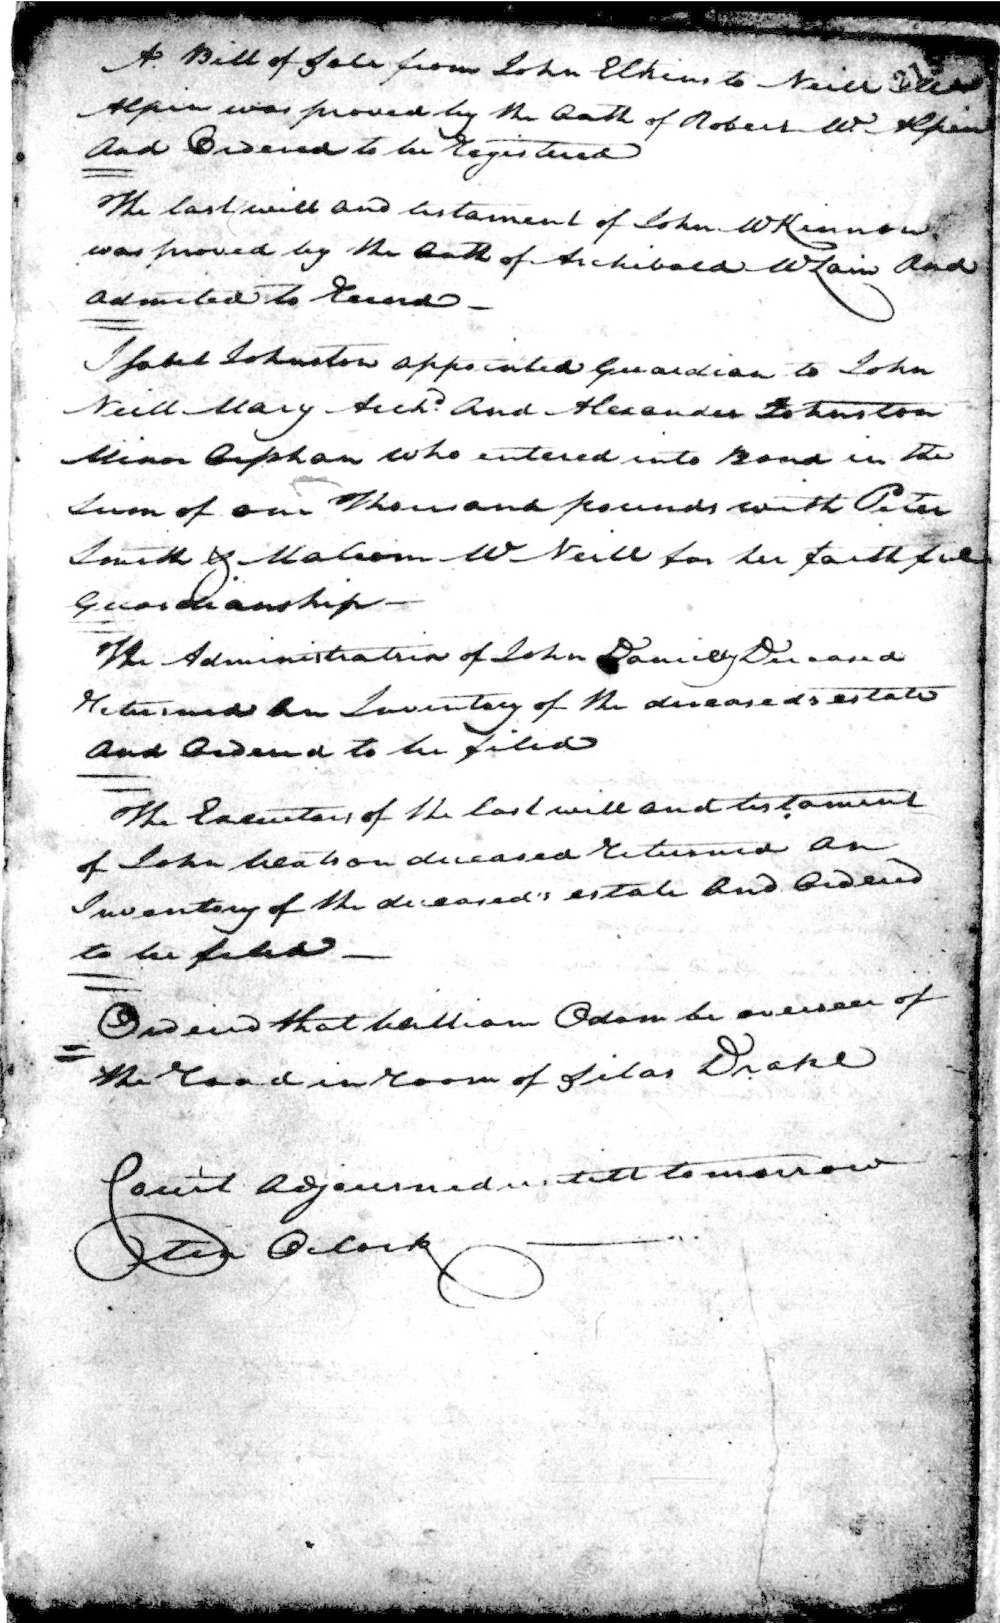 A Bill of Sale from John Elkins to Neill Mc
Alpin was proved by the Oath of Robert Mc Alpin
And Ordered to be Registered
The last will and testament of John McKinnon
was proved by the Oath of Archibald McLain And
admited to Record —
Isabel Johnston appointed Guardian to John
Neill Mary Archd. And Alexander Johnston
Minor Orphan who entered into Bond in the
Sum of one Thousand pounds with Peter
Smith & Malcom Mc Neill for her faithful
Guardianship —
The Administratrix of John Deceased
Returned An Inventory of the deceased's estate
And Ordered to be filed
The Executors of the last will and testament
of John Watson deceased Returned An
Inventory of the deceased's estate And Ordered
to be filed —
Ordered that William Odom be overseer of
the Road in room of Silas Drake
Court Adjourned untill tomorrow
ten OClock